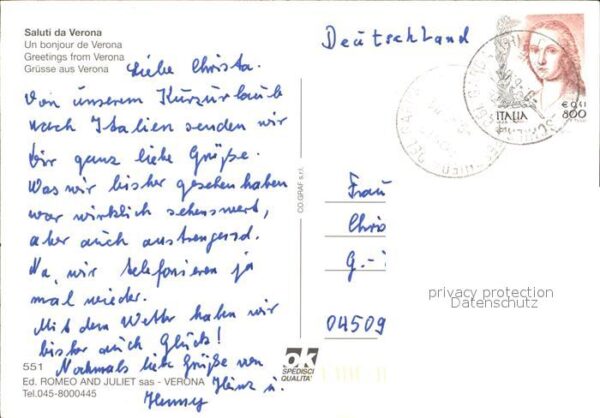 Saluti da Verona
Un bonjour de Verona
Greetings from Verona
Grüsse aus Verona
Liebe Christa.
Von unserem Kurzurlaub
nach Italien senden wir
Dir ganz liebe Grüße.
Was wir bisher gesehen haben
war wirklich sehenswert,
aber auch anstrengend.
Na, wir telefonieren ja
mal wieder.
Mit dem Wetter haben wir
bisher auch Glück!
Nochmals liebe Grüße von
Heinz u.
Henny
551
Ed. ROMEO AND JULIET sas - VERONA
Tel.045-8000445
CO.GRAF s.r.l.
ok
SPEDISCI
QUALITA'
Deutschland
€ 0,41
ITALIA 800
Frau
Chris
G.-
04509
privacy protection
Datenschutz